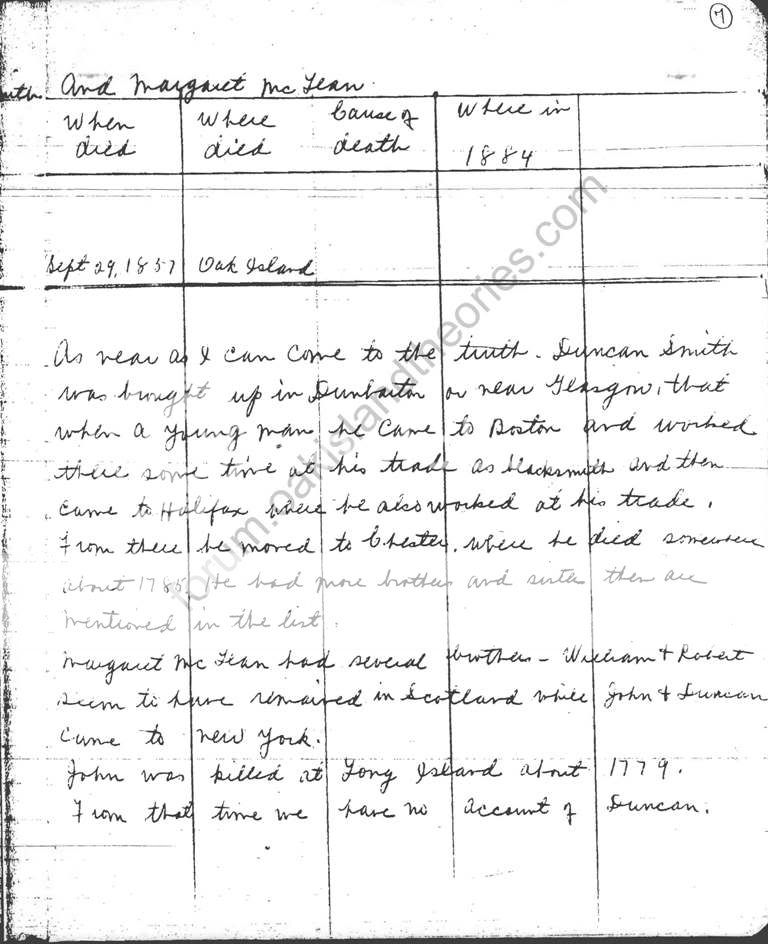 7
And Margaret Mc Lean
When died
Where died
Cause of death
Where in 1884
Sept 29, 1857 Oak Island
As near as I can come to the truth. Duncan Smith
was brought up in Dunbarton or near Glasgow, that
when a young man he came to Boston and worked
there some time at his trade as blacksmith and then
came to Halifax where he also worked at his trade.
From there he moved to Chester, where he died somewhere
about 1785. He had more brothers and sisters then are
mentioned in the list.
Margaret Mc Lean had several brothers - William & Robert
seem to have remained in Scotland while John & Duncan
came to new York.
John was killed at Long Island about 1779.
From that time we have no account of Duncan.
forum.oakislandtheories.com